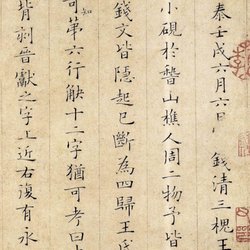 泰壬戌六月六日錢清三槐王
小硯於稽山樵人周二物予皆
錢文皆隱起已斷為四歸王氏
可知第六行缺十二字猶可考曰
背刻晉獻之字上近右復有永